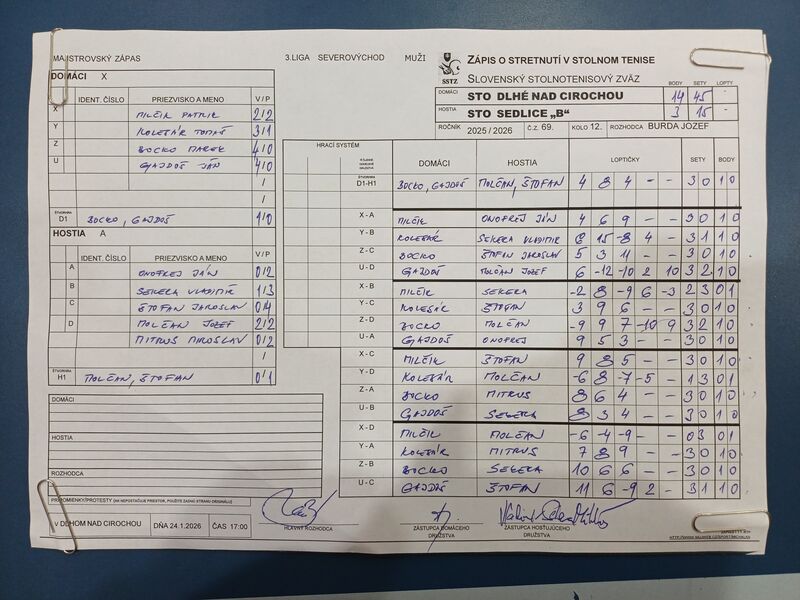 MAJSTROVSKÝ ZÁPAS 3.LIGA SEVEROVÝCHOD MUŽI
ZÁPIS O STRETNUTÍ V STOLNOM TENISE
SSTZ SLOVENSKÝ STOLNOTENISOVÝ ZVÄZ
BODY SETY LOPTY
DOMÁCI STO DLHÉ NAD CIROCHOU 14 45 -
HOSTIA STO SEDLICE „B" 3 15 -
ROČNÍK 2025 / 2026 Č.Z. 69. KOLO 12. ROZHODCA BURDA JOZEF
DOMÁCI X
IDENT. ČÍSLO PRIEZVISKO A MENO V / P
X MILČÍK PATRIK 2/2
Y KOLETÁR TOMÁŠ 3/1
Z BOCKO MAREK 4/0
U GAJDOŠ JÁN 4/0
/
/
ŠTVORHRA
D1 BOCKO, GAJDOŠ 1/0
HOSTIA A
IDENT. ČÍSLO PRIEZVISKO A MENO V / P
A ONOFREJ JÁN 0/2
B SEKERA VLADIMÍR 1/3
C ŠTOFAN JAROSLAV 0/4
D MOLČAN JOZEF 2/2
MITRUS MIROSLAV 0/2
/
ŠTVORHRA
H1 MOLČAN, ŠTOFAN 0/1
HRACÍ SYSTÉM DOMÁCI HOSTIA LOPTIČKY SETY BODY
ŠTVORHRA
D1-H1 BOCKO, GAJDOŠ MOLČAN, ŠTOFAN 4 8 4 - - 3 0 1 0
X - A MILČÍK ONOFREJ JÁN 4 6 9 - - 3 0 1 0
Y - B KOLETÁR SEKERA VLADIMÍR 8 15 -8 4 - 3 1 1 0
Z - C BOCKO ŠTOFAN JAROSLAV 5 3 11 - - 3 0 1 0
U - D GAJDOŠ MOLČAN JOZEF 6 -12 -10 2 10 3 2 1 0
X - B MILČÍK SEKERA -2 8 -9 6 -3 2 3 0 1
Y - C KOLETÁR ŠTOFAN 3 9 6 - - 3 0 1 0
Z - D BOCKO MOLČAN -9 9 7 -10 9 3 2 1 0
U - A GAJDOŠ ONOFREJ 9 5 3 - - 3 0 1 0
X - C MILČÍK ŠTOFAN 9 8 5 - - 3 0 1 0
Y - D KOLETÁR MOLČAN -6 8 -7 -5 - 1 3 0 1
Z - A BOCKO MITRUS 8 6 4 - - 3 0 1 0
U - B GAJDOŠ SEKERA 8 3 4 - - 3 0 1 0
X - D MILČÍK MOLČAN -6 -4 -9 - - 0 3 0 1
Y - A KOLETÁR MITRUS 7 8 9 - - 3 0 1 0
Z - B BOCKO SEKERA 10 6 6 - - 3 0 1 0
U - C GAJDOŠ ŠTOFAN 11 6 -9 2 - 3 1 1 0
DOMÁCI
HOSTIA
ROZHODCA
PRIPOMIENKY/PROTESTY (AK NEPOSTAČUJE PRIESTOR, POUŽITE ZADNÚ STRANU ORIGINÁLU)
V DLHOM NAD CIROCHOU DŇA 24.1.2026 ČAS 17:00
HLAVNÝ ROZHODCA
ZÁSTUPCA DOMÁCEHO DRUŽSTVA
ZÁSTUPCA HOSŤUJÚCEHO DRUŽSTVA